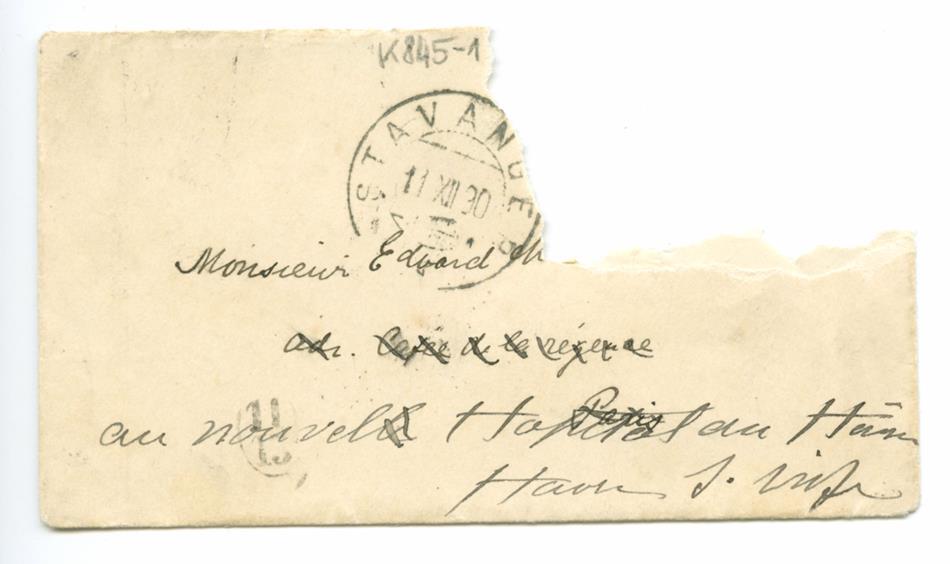 K845-1
STAVANGER
11 XII 90
Monsieur Edvard M
adr. Cafée de la régence
Paris
au nouvel Hopital au Havre
Havre S.